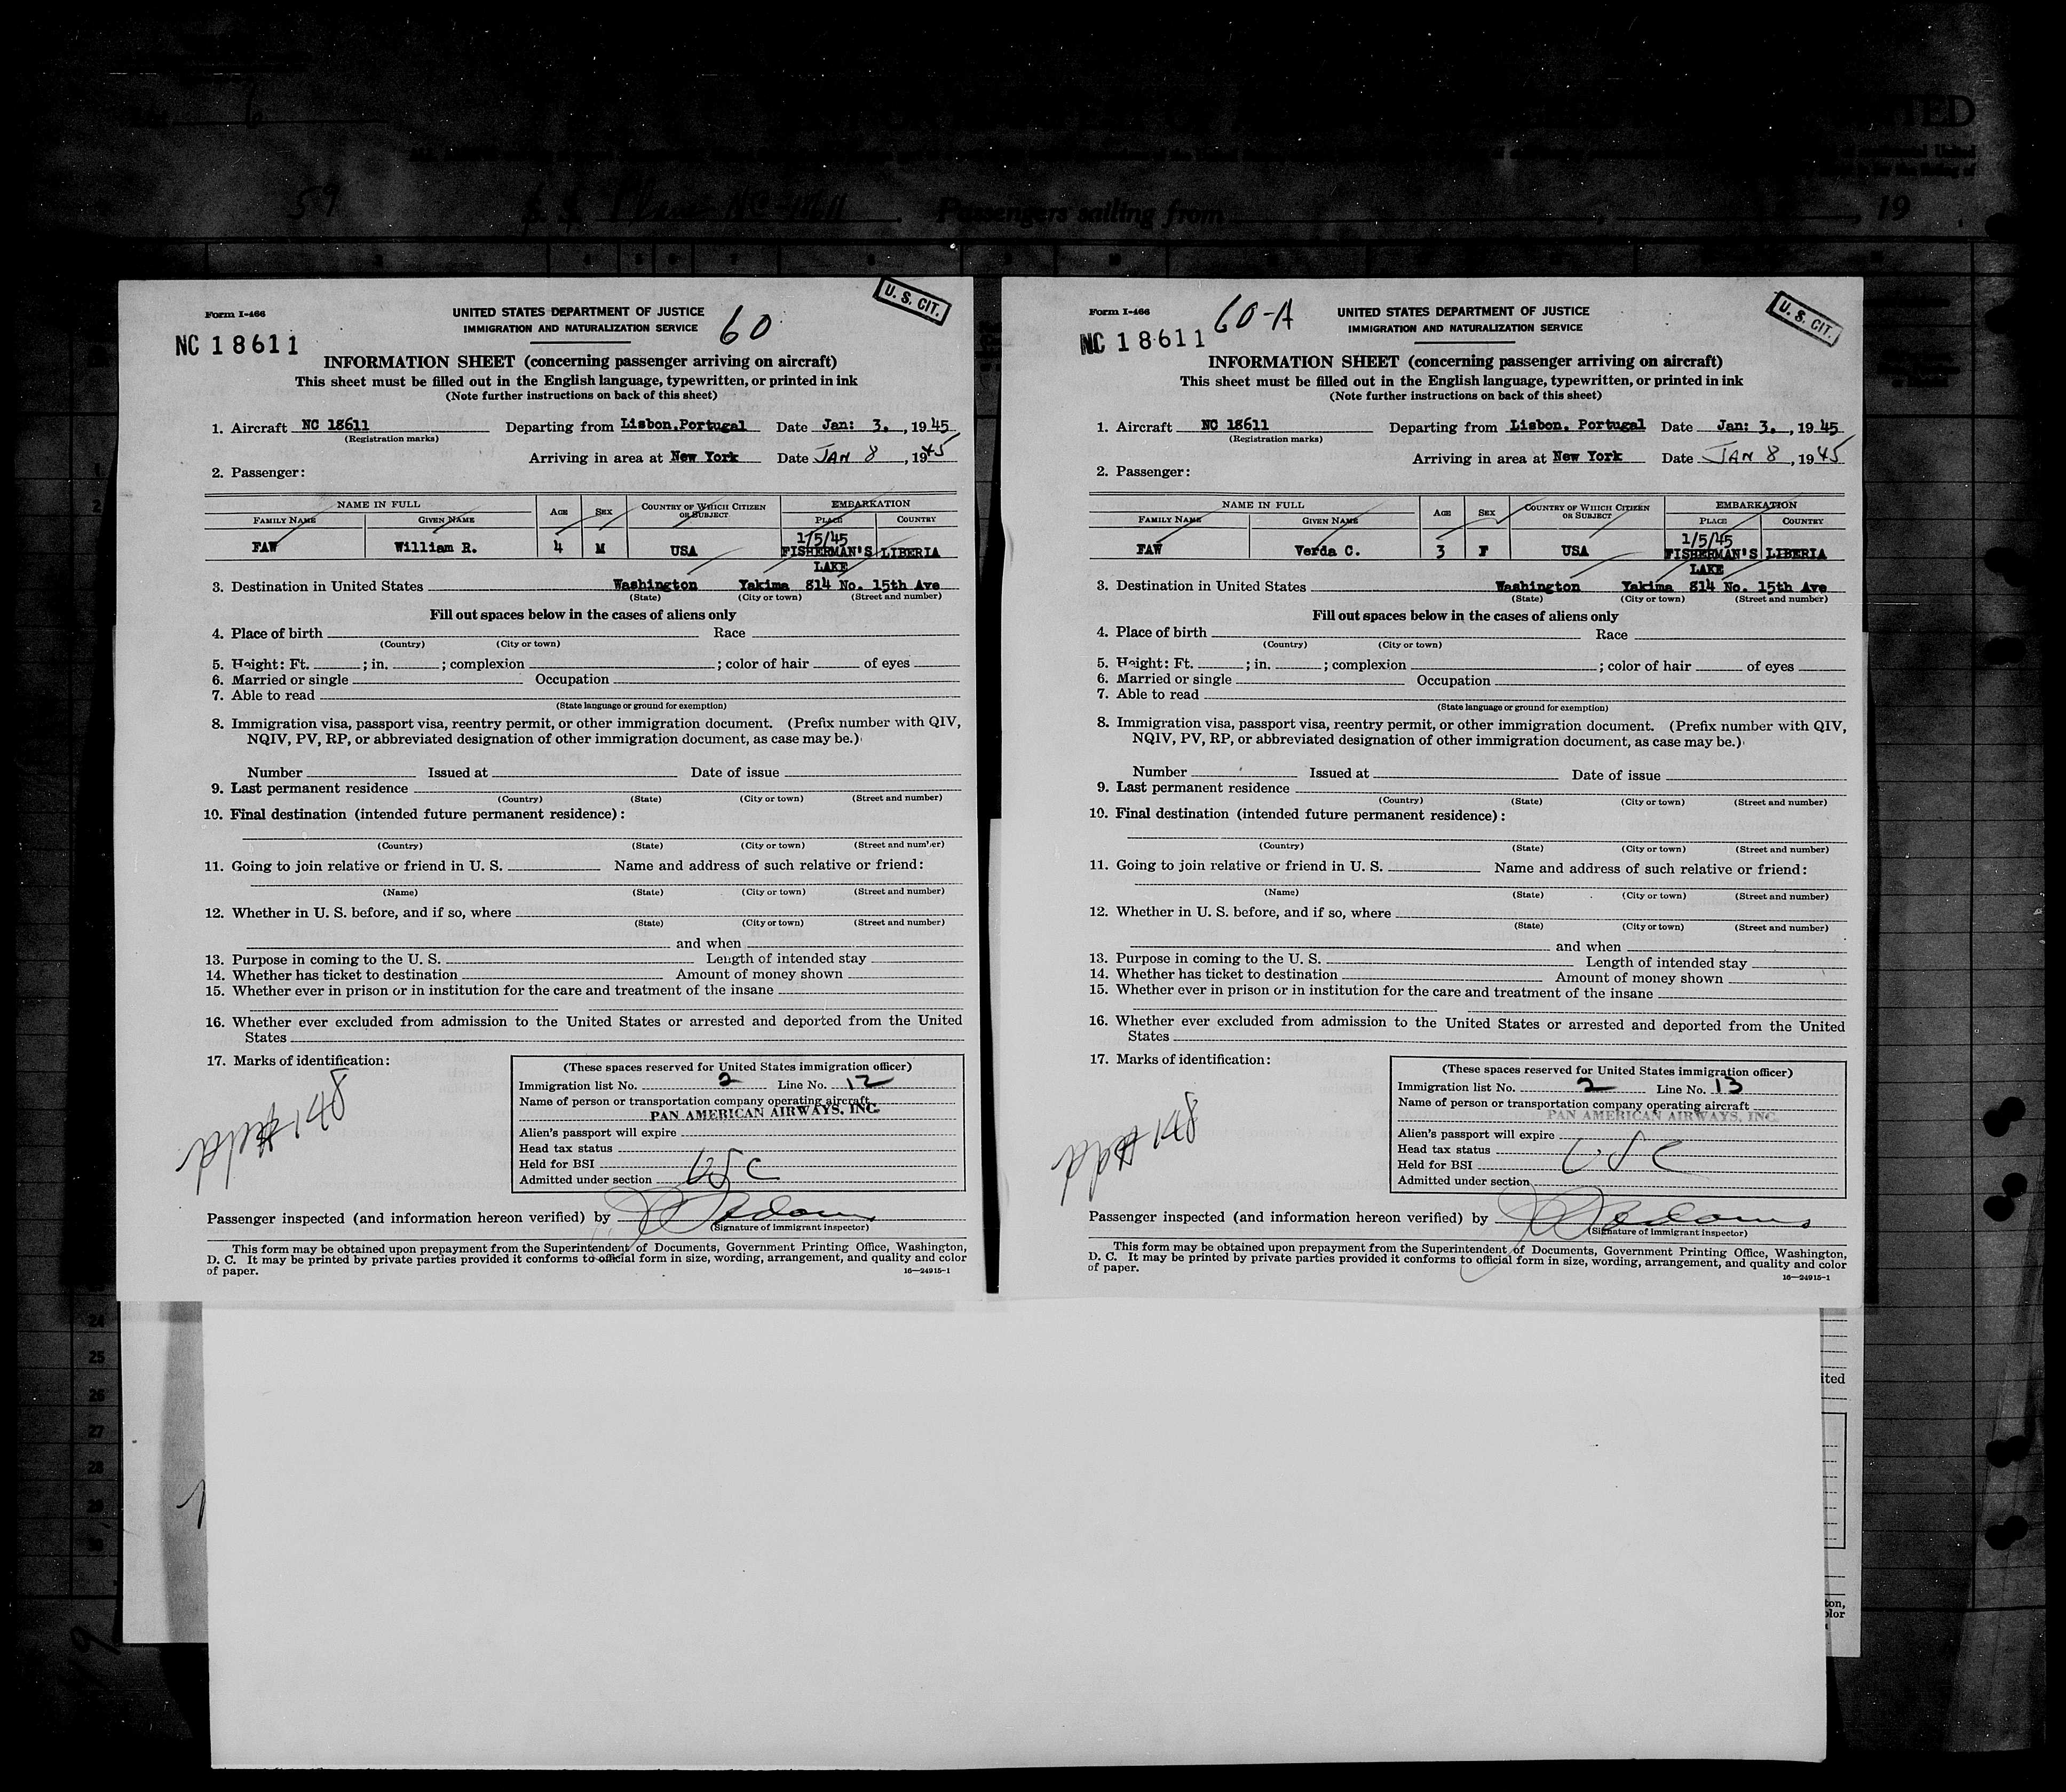 6
59
S. S. Plane NC-18611 Passengers sailing from , 19
U. S. CIT.
Form I-466
UNITED STATES DEPARTMENT OF JUSTICE
60
IMMIGRATION AND NATURALIZATION SERVICE
NC 18611
INFORMATION SHEET (concerning passenger arriving on aircraft)
This sheet must be filled out in the English language, typewritten, or printed in ink
(Note further instructions on back of this sheet)
1. Aircraft NC 18611 Departing from Lisbon, Portugal Date Jan: 3. , 1945
(Registration marks)
Arriving in area at New York Date JAN 8 , 1945
2. Passenger:
NAME IN FULL AGE SEX COUNTRY OF WHICH CITIZEN OR SUBJECT EMBARKATION
FAMILY NAME GIVEN NAME PLACE COUNTRY
1/5/45
FAW William R. 4 M USA FISHERMAN'S LIBERIA
LAKE
3. Destination in United States Washington Yakima 814 No. 15th Ave
(State) (City or town) (Street and number)
Fill out spaces below in the cases of aliens only
4. Place of birth Race
(Country) (City or town)
5. Height: Ft. ; in. ; complexion ; color of hair of eyes
6. Married or single Occupation
7. Able to read
(State language or ground for exemption)
8. Immigration visa, passport visa, reentry permit, or other immigration document. (Prefix number with QIV,
NQIV, PV, RP, or abbreviated designation of other immigration document, as case may be.)
Number Issued at Date of issue
9. Last permanent residence
(Country) (State) (City or town) (Street and number)
10. Final destination (intended future permanent residence):
(Country) (State) (City or town) (Street and number)
11. Going to join relative or friend in U. S. Name and address of such relative or friend:
(Name) (State) (City or town) (Street and number)
12. Whether in U. S. before, and if so, where
(State) (City or town) (Street and number)
and when
13. Purpose in coming to the U. S. Length of intended stay
14. Whether has ticket to destination Amount of money shown
15. Whether ever in prison or in institution for the care and treatment of the insane
16. Whether ever excluded from admission to the United States or arrested and deported from the United
States
17. Marks of identification:
(These spaces reserved for United States immigration officer)
Immigration list No. 2 Line No. 12
Name of person or transportation company operating aircraft
PAN AMERICAN AIRWAYS, INC.
Alien's passport will expire
Head tax status
Held for BSI USC
Admitted under section
Passenger inspected (and information hereon verified) by
(Signature of immigrant inspector)
This form may be obtained upon prepayment from the Superintendent of Documents, Government Printing Office, Washington,
D. C. It may be printed by private parties provided it conforms to official form in size, wording, arrangement, and quality and color
of paper. 16—24915-1
U. S. CIT.
Form I-466
60-A
UNITED STATES DEPARTMENT OF JUSTICE
IMMIGRATION AND NATURALIZATION SERVICE
NC 18611
INFORMATION SHEET (concerning passenger arriving on aircraft)
This sheet must be filled out in the English language, typewritten, or printed in ink
(Note further instructions on back of this sheet)
1. Aircraft NC 18611 Departing from Lisbon, Portugal Date Jan: 3. , 1945
(Registration marks)
Arriving in area at New York Date JAN 8 , 1945
2. Passenger:
NAME IN FULL AGE SEX COUNTRY OF WHICH CITIZEN OR SUBJECT EMBARKATION
FAMILY NAME GIVEN NAME PLACE COUNTRY
1/5/45
FAW Verda C. 3 F USA FISHERMAN'S LIBERIA
LAKE
3. Destination in United States Washington Yakima 814 No. 15th Ave
(State) (City or town) (Street and number)
Fill out spaces below in the cases of aliens only
4. Place of birth Race
(Country) (City or town)
5. Height: Ft. ; in. ; complexion ; color of hair of eyes
6. Married or single Occupation
7. Able to read
(State language or ground for exemption)
8. Immigration visa, passport visa, reentry permit, or other immigration document. (Prefix number with QIV,
NQIV, PV, RP, or abbreviated designation of other immigration document, as case may be.)
Number Issued at Date of issue
9. Last permanent residence
(Country) (State) (City or town) (Street and number)
10. Final destination (intended future permanent residence):
(Country) (State) (City or town) (Street and number)
11. Going to join relative or friend in U. S. Name and address of such relative or friend:
(Name) (State) (City or town) (Street and number)
12. Whether in U. S. before, and if so, where
(State) (City or town) (Street and number)
and when
13. Purpose in coming to the U. S. Length of intended stay
14. Whether has ticket to destination Amount of money shown
15. Whether ever in prison or in institution for the care and treatment of the insane
16. Whether ever excluded from admission to the United States or arrested and deported from the United
States
17. Marks of identification:
(These spaces reserved for United States immigration officer)
Immigration list No. 2 Line No. 13
Name of person or transportation company operating aircraft
PAN AMERICAN AIRWAYS, INC.
Alien's passport will expire
Head tax status
Held for BSI USC
Admitted under section
Passenger inspected (and information hereon verified) by
(Signature of immigrant inspector)
This form may be obtained upon prepayment from the Superintendent of Documents, Government Printing Office, Washington,
D. C. It may be printed by private parties provided it conforms to official form in size, wording, arrangement, and quality and color
of paper. 16—24915-1
24
25
26
27
28
29
30
ited
ton,
olor